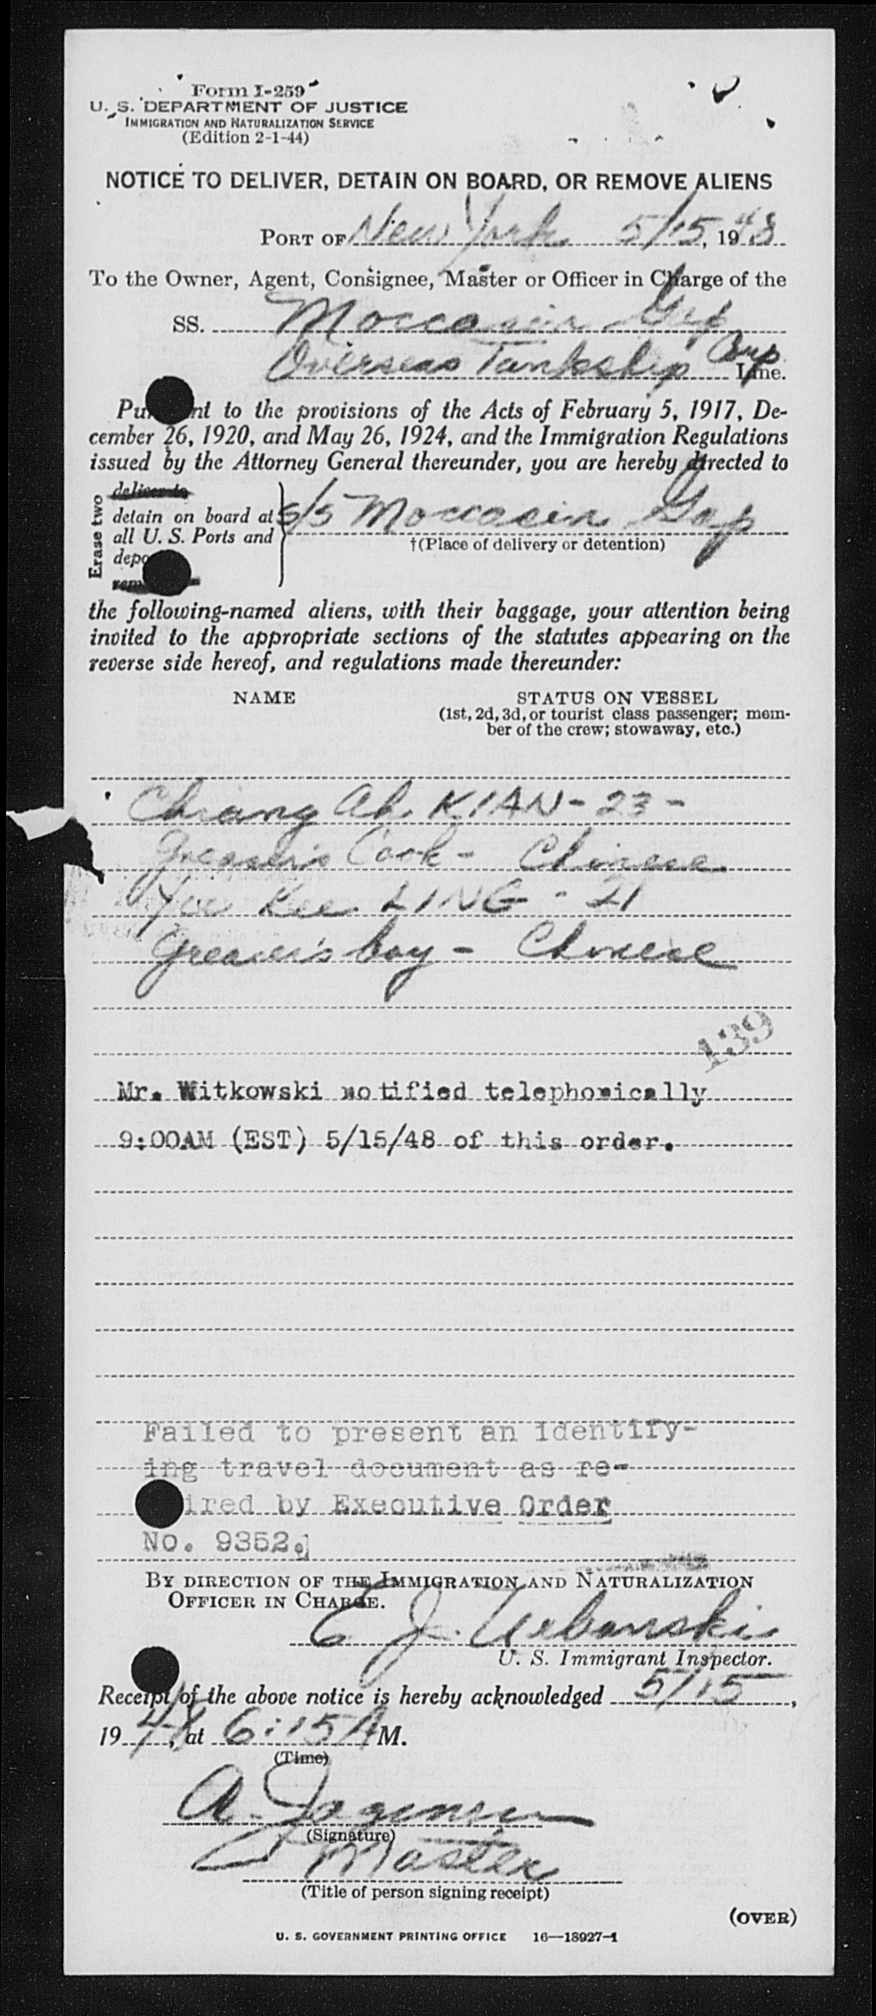 Form I-259
U. S. DEPARTMENT OF JUSTICE
IMMIGRATION AND NATURALIZATION SERVICE
(Edition 2-1-44)
NOTICE TO DELIVER, DETAIN ON BOARD, OR REMOVE ALIENS
PORT OF New York 5/15, 1948
To the Owner, Agent, Consignee, Master or Officer in Charge of the
SS. Moccasin Gap
Overseas Tankship Corp Line.
Pu nt to the provisions of the Acts of February 5, 1917, De-
cember 26, 1920, and May 26, 1924, and the Immigration Regulations
issued by the Attorney General thereunder, you are hereby directed to
Erase two
deliver to
detain on board at
all U. S. Ports and
depo
rem
S/S Moccasin Gap
†(Place of delivery or detention)
the following-named aliens, with their baggage, your attention being
invited to the appropriate sections of the statutes appearing on the
reverse side hereof, and regulations made thereunder:
NAME
STATUS ON VESSEL
(1st, 2d, 3d, or tourist class passenger; mem-
ber of the crew; stowaway, etc.)
Chiang Ah KIAN - 23 -
Greaser's Cook - Chinese
Kee LING - 21
Greaser's boy - Chinese
139
Mr. Witkowski notified telephonically
9:00AM (EST) 5/15/48 of this order.
Failed to present an identify-
ing travel document as re-
ired by Executive Order
No. 9352.
BY DIRECTION OF THE IMMIGRATION AND NATURALIZATION
OFFICER IN CHARGE.
E J. Urbanski
U. S. Immigrant Inspector.
Receipt of the above notice is hereby acknowledged 5/15,
19 48, at 6:15 A M.
(Time)
A.
(Signature)
Master
(Title of person signing receipt)
(OVER)
U. S. GOVERNMENT PRINTING OFFICE 16—18927-1